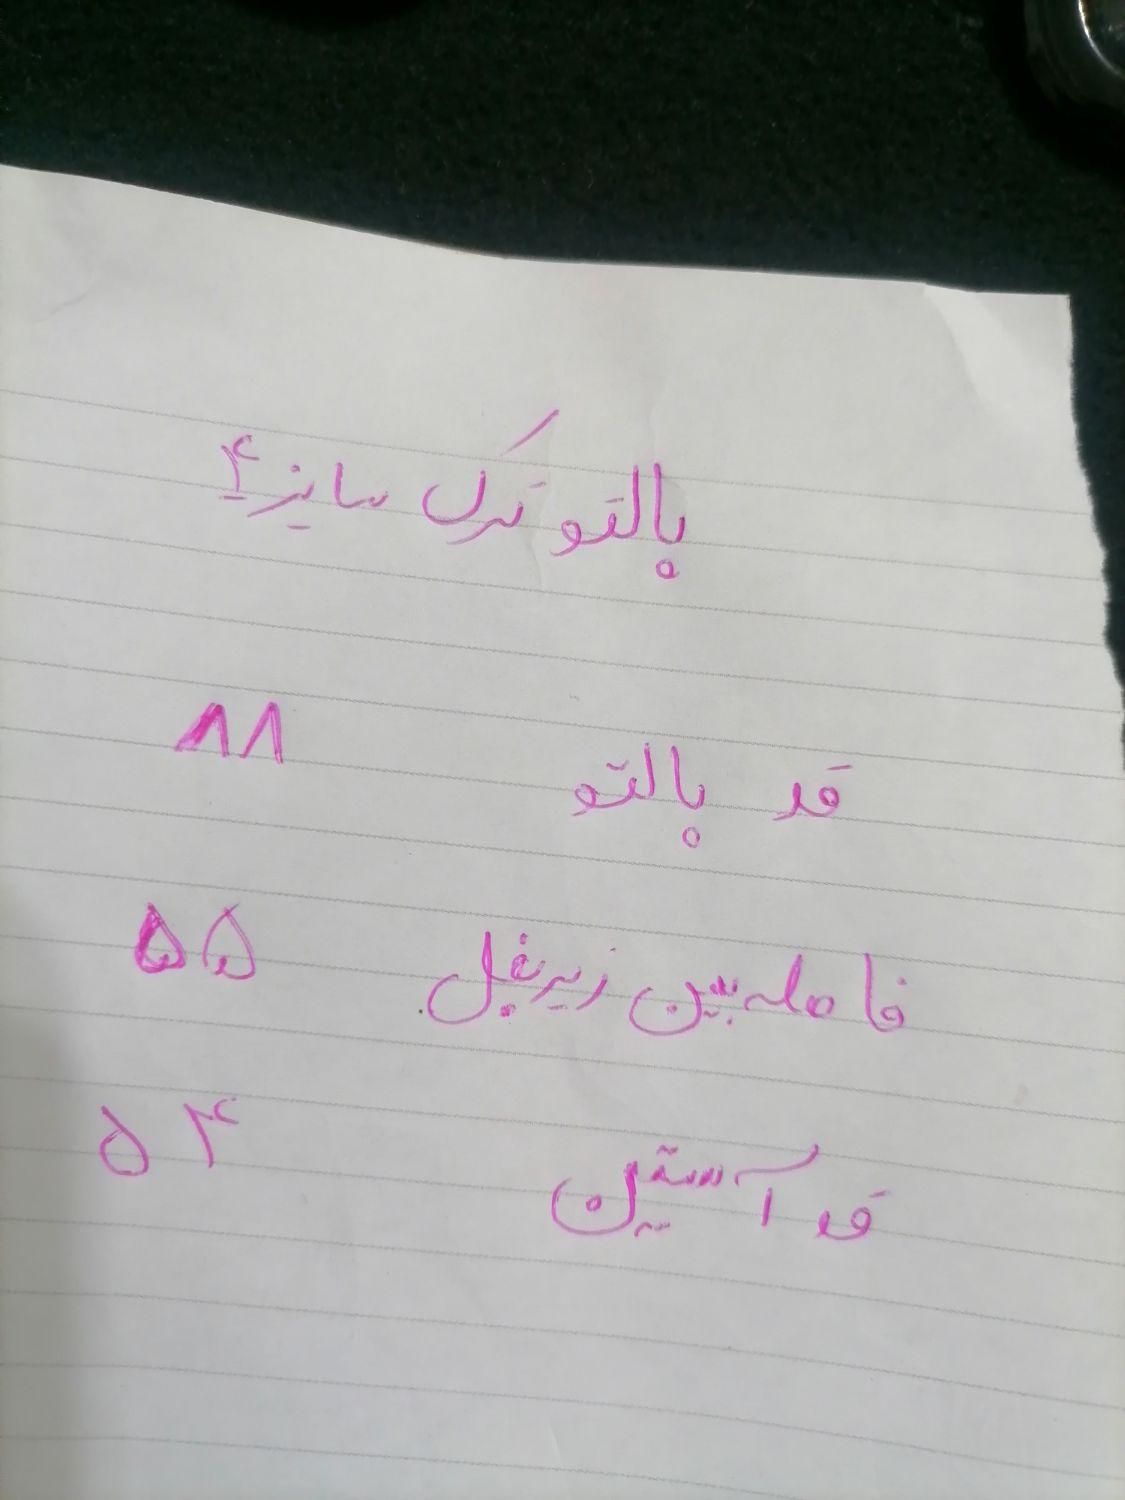 پالتو ترک سایز ۴
قد پالتو ۸۸
فاصله بین زیر بغل ۵۵
قد آستین ۵۴